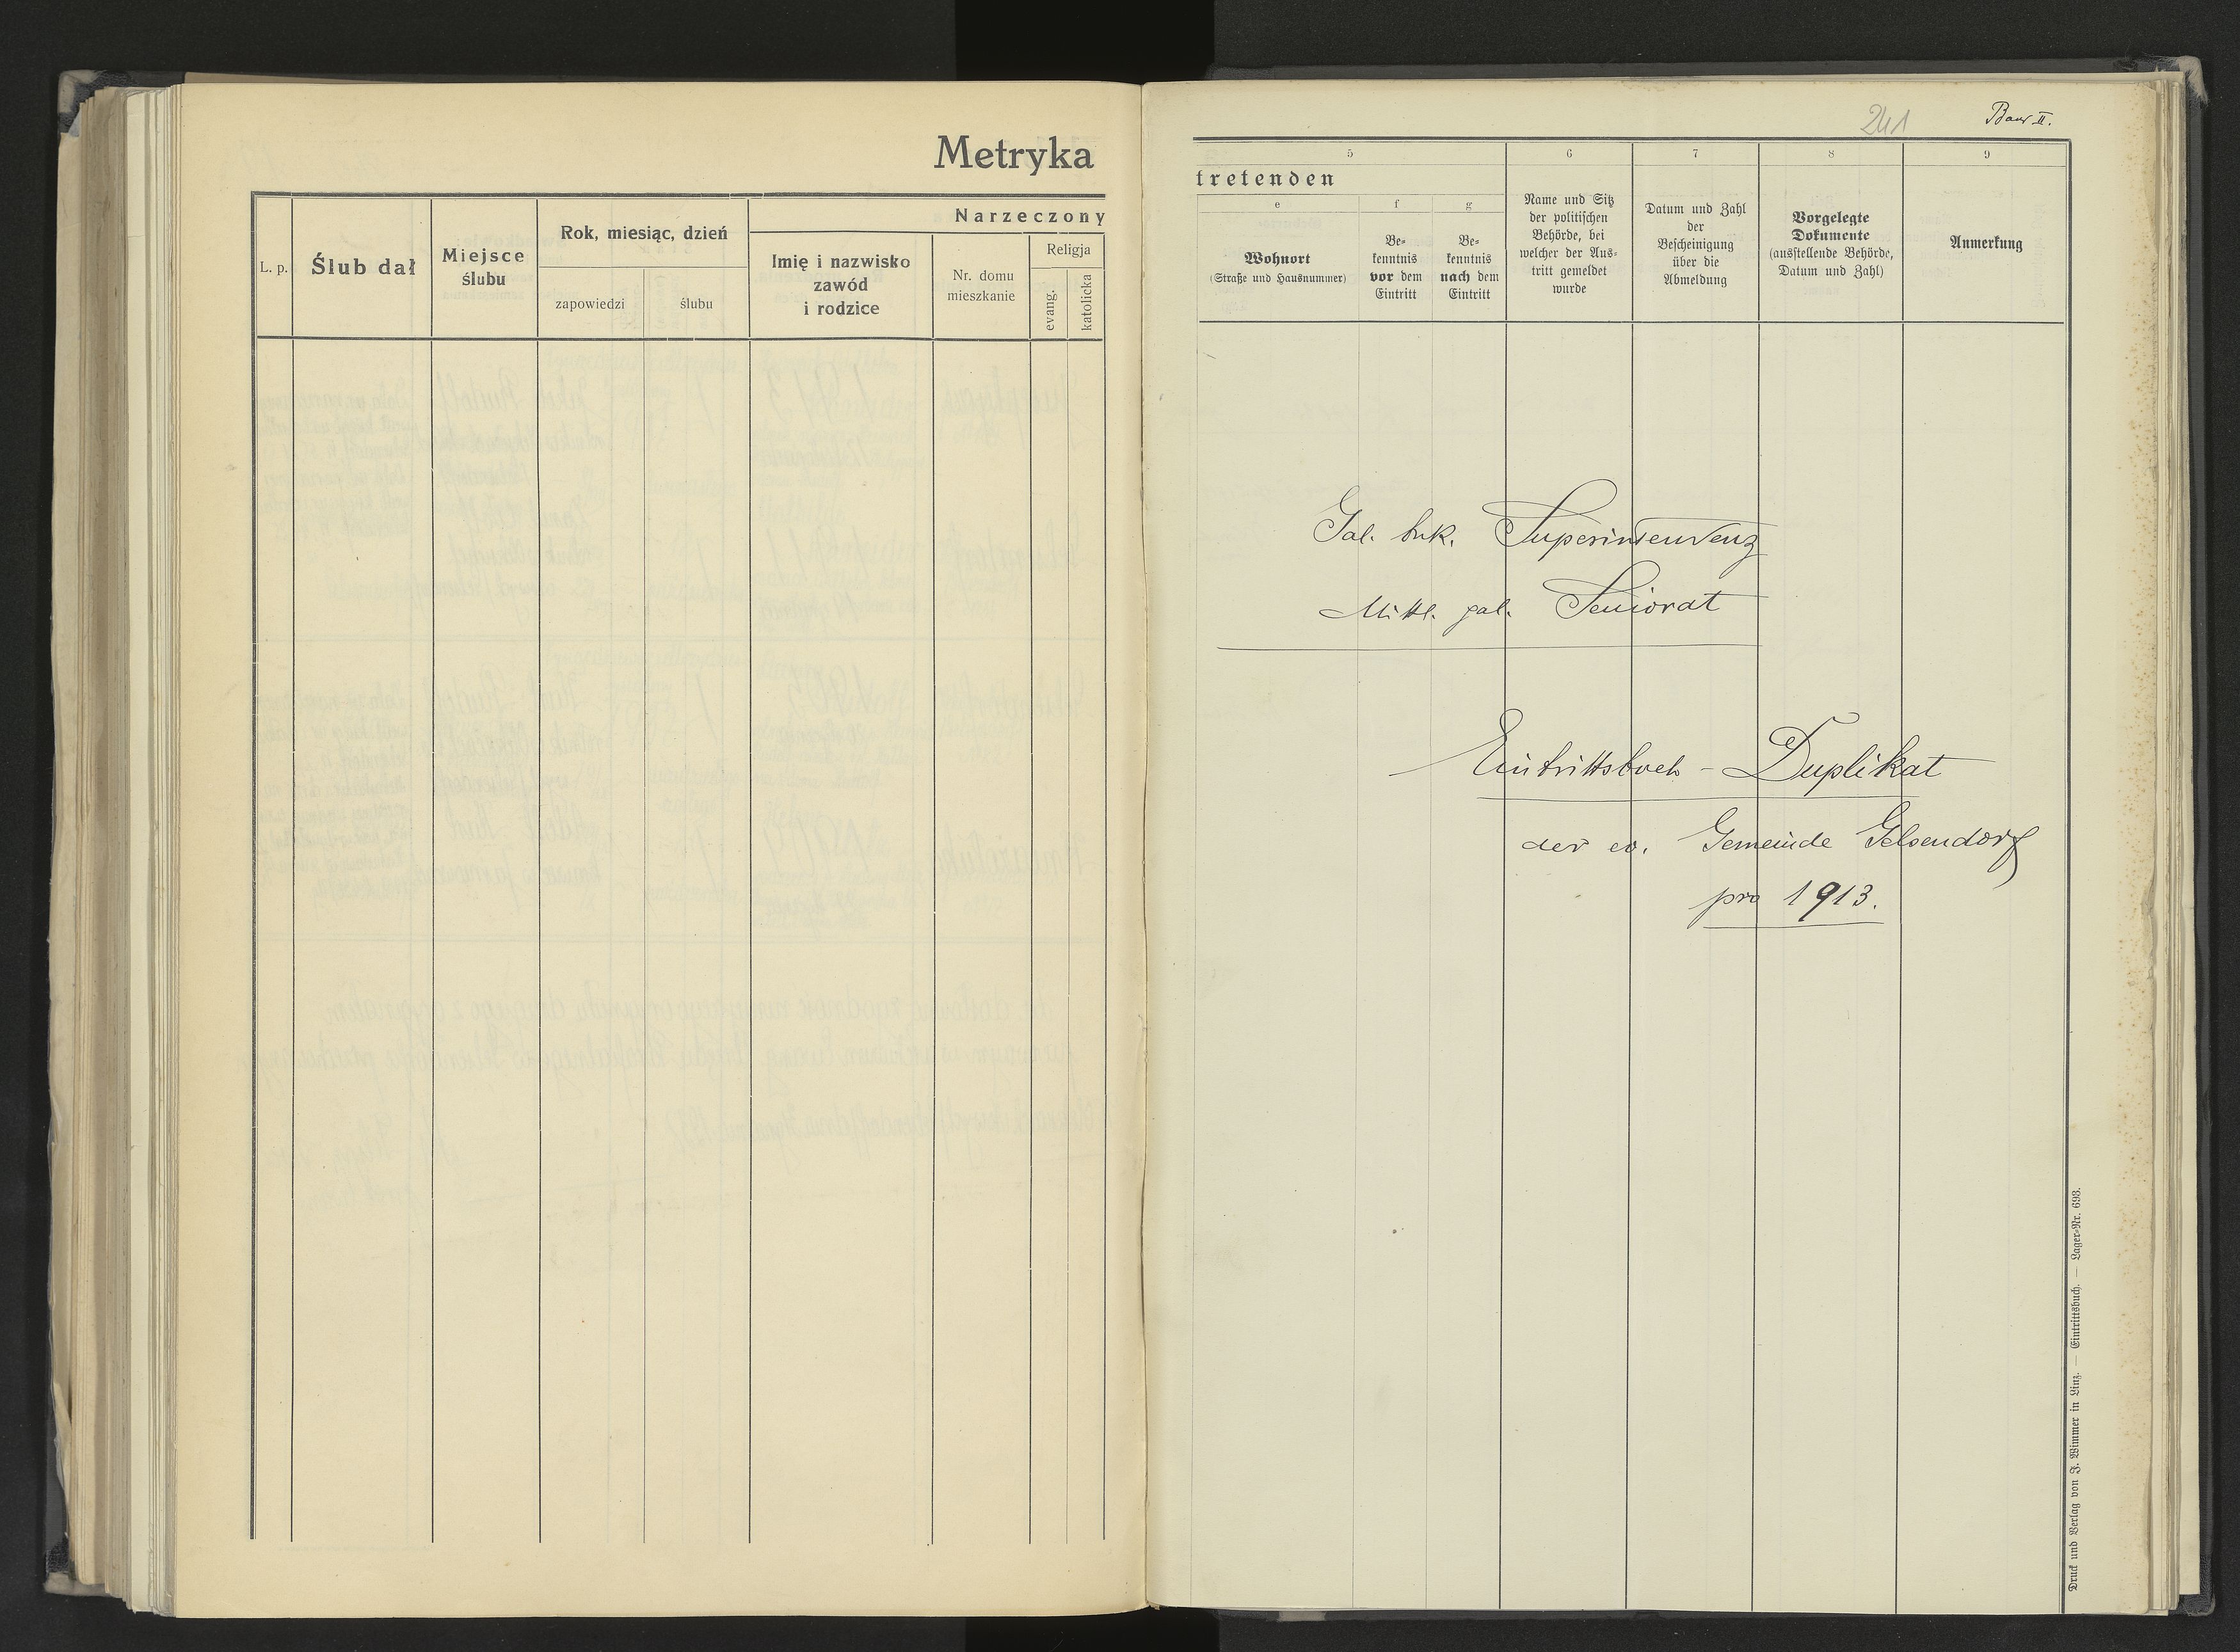 Metryka
L. p.
Ślub dał
Miejsce
ślubu
Rok, miesiąc, dzień
zapowiedzi
ślubu
Narzeczony
Imię i nazwisko
zawód
i rodzice
Nr. domu
mieszkanie
Religja
evang.
katolicka
241
Band II.
5
6
7
8
9
tretenden
e
f
g
Wohnort
(Straße und Hausnummer)
Be-
kenntnis
vor dem
Eintritt
Be-
kenntnis
nach dem
Eintritt
Name und Sitz
der politischen
Behörde, bei
welcher der Aus-
tritt gemeldet
wurde
Datum und Zahl
der
Bescheinigung
über die
Abmeldung
Vorgelegte
Dokumente
(ausstellende Behörde,
Datum und Zahl)
Anmerkung
Gal. buk. Superintendenz
Mittl. gal. Seniorat
Eintrittsbuch - Duplikat
der ev. Gemeinde Gelsendorf
pro 1913.
Druck und Verlag von J. Wimmer in Linz. — Eintrittsbuch. — Lager-Nr. 693.